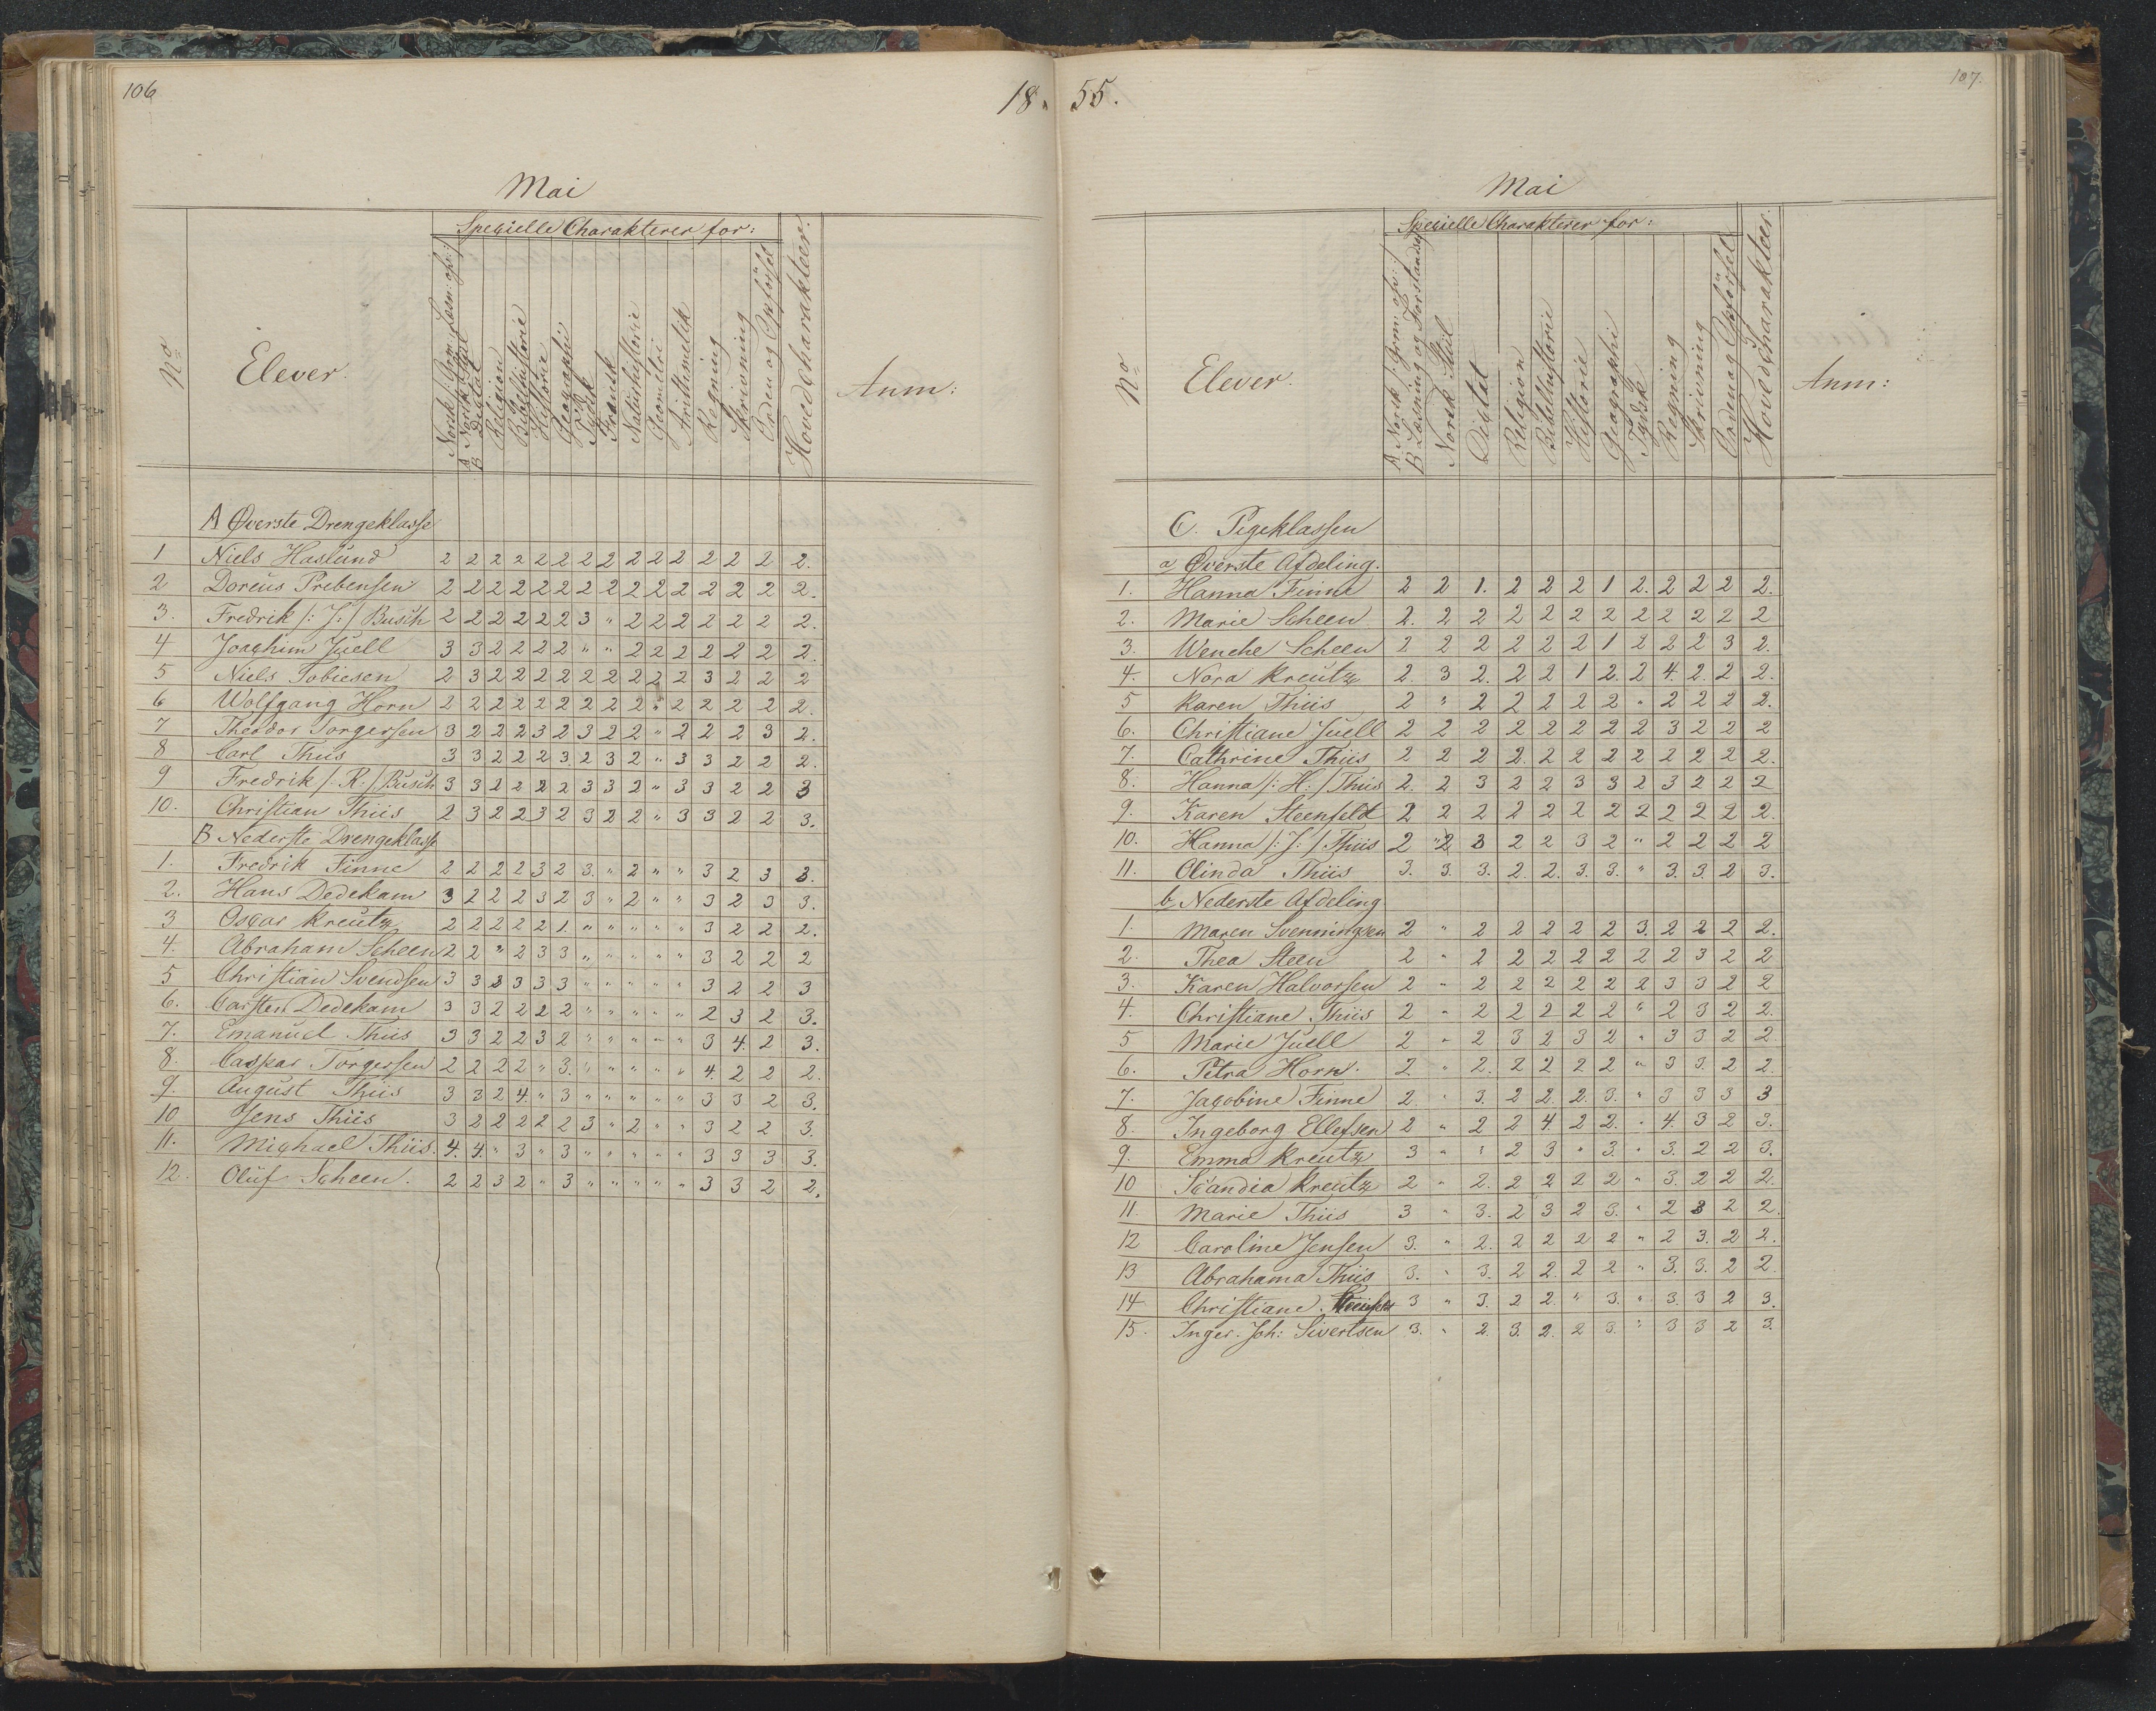 106
18 55.
107.
Mai
Specielle Charakterer for:
No
Elever.
Norsk /: Gram: Læsn: osv: /
A Norsk Stiil
B Diktat
Religion
Bibelhistorie
Historie
Geographi
Tydsk
Fransk
Naturhistorie
Geometri
Arithmetik
Regning
Skrivning
Orden og Opförsel
Hovedcharakteer.
Anm:
A Øverste Drengeklasse
1 Niels Haslund 2 2 2 2 2 2 2 2 2 2 2 2 2 2 2.
2 Doreus Prebensen 2 2 2 2 2 2 2 2 2 2 2 2 2 2 2.
3. Fredrik /: J: / Busch 2 2 2 2 2 2 3 " 2 2 2 2 2 2 2.
4 Joachim Juell 3 3 2 2 2 2 " " 2 2 2 2 2 2 2.
5 Niels Tobiesen 2 3 2 2 2 2 2 2 2 2 2 3 2 2 2
6 Wolfgang Horn 2 2 2 2 2 2 2 2 2 " 2 2 2 2 2.
7 Theodor Torgersen 3 2 2 2 3 2 3 2 2 " 2 2 2 3 2.
8 Carl Thiis 3 3 2 2 2 3. 2 3 2 " 3 3 2 2 2.
9 Fredrik /: R: / Busch 3 3 2 2 2 2 3 3 2 " 3 3 2 2 3
10. Christian Thiis 2 3 2 2 3 2 3 2 2 " 3 3 2 2 3.
B Nederste Drengeklasse
1. Fredrik Finne 2 2 2 2 3 2 3. " 2 " " 3 2 3 3.
2. Hans Dedekam 3 2 2 2 3 2 3 " 2 " " 3 2 3 3.
3 Oscar Kreutz 2 2 2 2 2 1. " " " " " 3 2 2 2.
4. Abraham Scheen 2 2 " 2 3 3 " " " " " 3 2 2 2
5 Christian Svendsen 3 3 3 3 3 3 " " " " " 3 2 2 3
6. Carsten Dedekam 3 3 2 2 2 2 " " " " " 2 3 2 3.
7. Emanuel Thiis 3 3 2 2 3 2 " " " " " 3 4. 2 3.
8. Caspar Torgersen 2 2 2 2 " 3. " " " " " 4. 2 2 2.
9. August Thiis 3 3 2 4. " 3 " " " " " 3 3 2 3.
10 Jens Thiis 3 2 2 2 2 2 3 " 2 " " 3 2 2 3.
11. Michael Thiis. 4. 4. " 3 " 3 " " " " " 3 3 3 3.
12. Oluf Scheen. 2 2 3 2 " 3 " " " " " 3 3 2 2.
Mai
Specielle Charakterer for:
No
Elever.
A Norsk /: Grm: osv: /
B Læsning og Forstandsø
Norsk Stiil
Diktat
Religion
Bibelhistorie
Historie
Geographi
Tydsk
Regning
Skrivning
Orden og Opförsel
Hovedcharakteer.
Anm:
C. Pigeklassen
a, Øverste Afdeling.
1. Hanna Finne 2 2 1. 2 2 2 1 2. 2 2 2 2.
2. Marie Scheen 2. 2 2 2 2 2 2 2 2 2 2 2
3. Wenche Scheen 2 2 2 2 2 2 1 2 2 2 3 2.
4. Nora Kreutz 2. 3 2. 2 2 1 2. 2 4. 2. 2 2.
5 Karen Thiis 2 " 2 2 2 2 2 " 2 2 2 2.
6. Christiane Juell 2 2 2 2 2 2 2 2 3 2 2 2
7. Cathrine Thiis 2 2 2 2. 2 2 2 2 2 2 2 2.
8. Hanna /: H: / Thiis 2. 2 3 2 2 3 3 2 3 2 2 2
9. Karen Steenfeldt 2 2 2 2 2 2 2 2 2 2 2 2.
10. Hanna /: J: / Thiis 2 "2 3 2 2 3 2 " 2 2 2 2
11. Olinda Thiis 3. 3. 3. 2. 2. 3. 3. " 3. 3. 2 3.
b, Nederste Afdeling.
1. Maren Svenningsen 2 " 2 2 2 2 2 3. 2 2 2 2.
2. Thea Steen 2 " 2 2 2 2 2 2 2 3 2 2
3. Karen Halvorsen 2 " 2 2 2 2 2 2 3 3 2 2
4. Christiane Thiis 2 " 2 2 2 2 2 " 2 3 2 2.
5 Marie Juell 2 " 2 3 2 3 2 " 3 3 2 2
6. Petra Horn. 2 " 2. 2 2 2 2 " 3 3. 2 2.
7. Jacobine Finne 2. " 3. 2 2. 2. 3. " 3 3 3 3
8. Ingeborg Ellefsen 2 " 2 2 4 2 2. " 4. 3 2 3.
9. Emma Kreutz 3 " " 2 3 " 3. " 3. 2 2 3.
10 Scandia Kreutz 2 " 2. 2 2 2 2 " 3. 2 2 2.
11. Marie Thiis 3 " 3. 2 3 2 3. " 2 3 2 2.
12 Caroline Jensen 3. " 2. 2 2 2 2 " 2 3. 2 2.
13 Abrahama Thiis 3. " 3. 2 2. 2 2 " 3. 3. 2 2.
14 Christiane 3 " 3. 2 2. " 3. " 3. 3 2 3.
15. Inger. Joh: Sivertsen 3. " 2. 3. 2. 2 3. " 3 3 2 3.